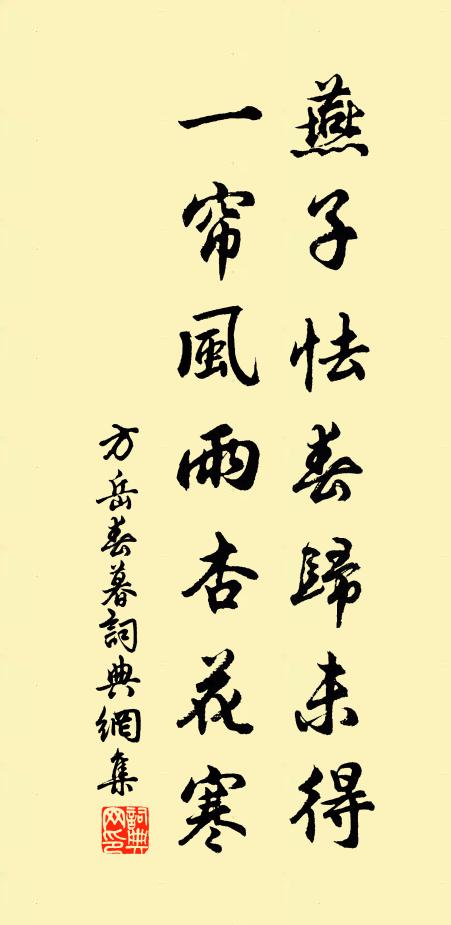 燕子怯春歸未得
一帘風雨杏花寒
方岳春暮詞典網集
詞典網印